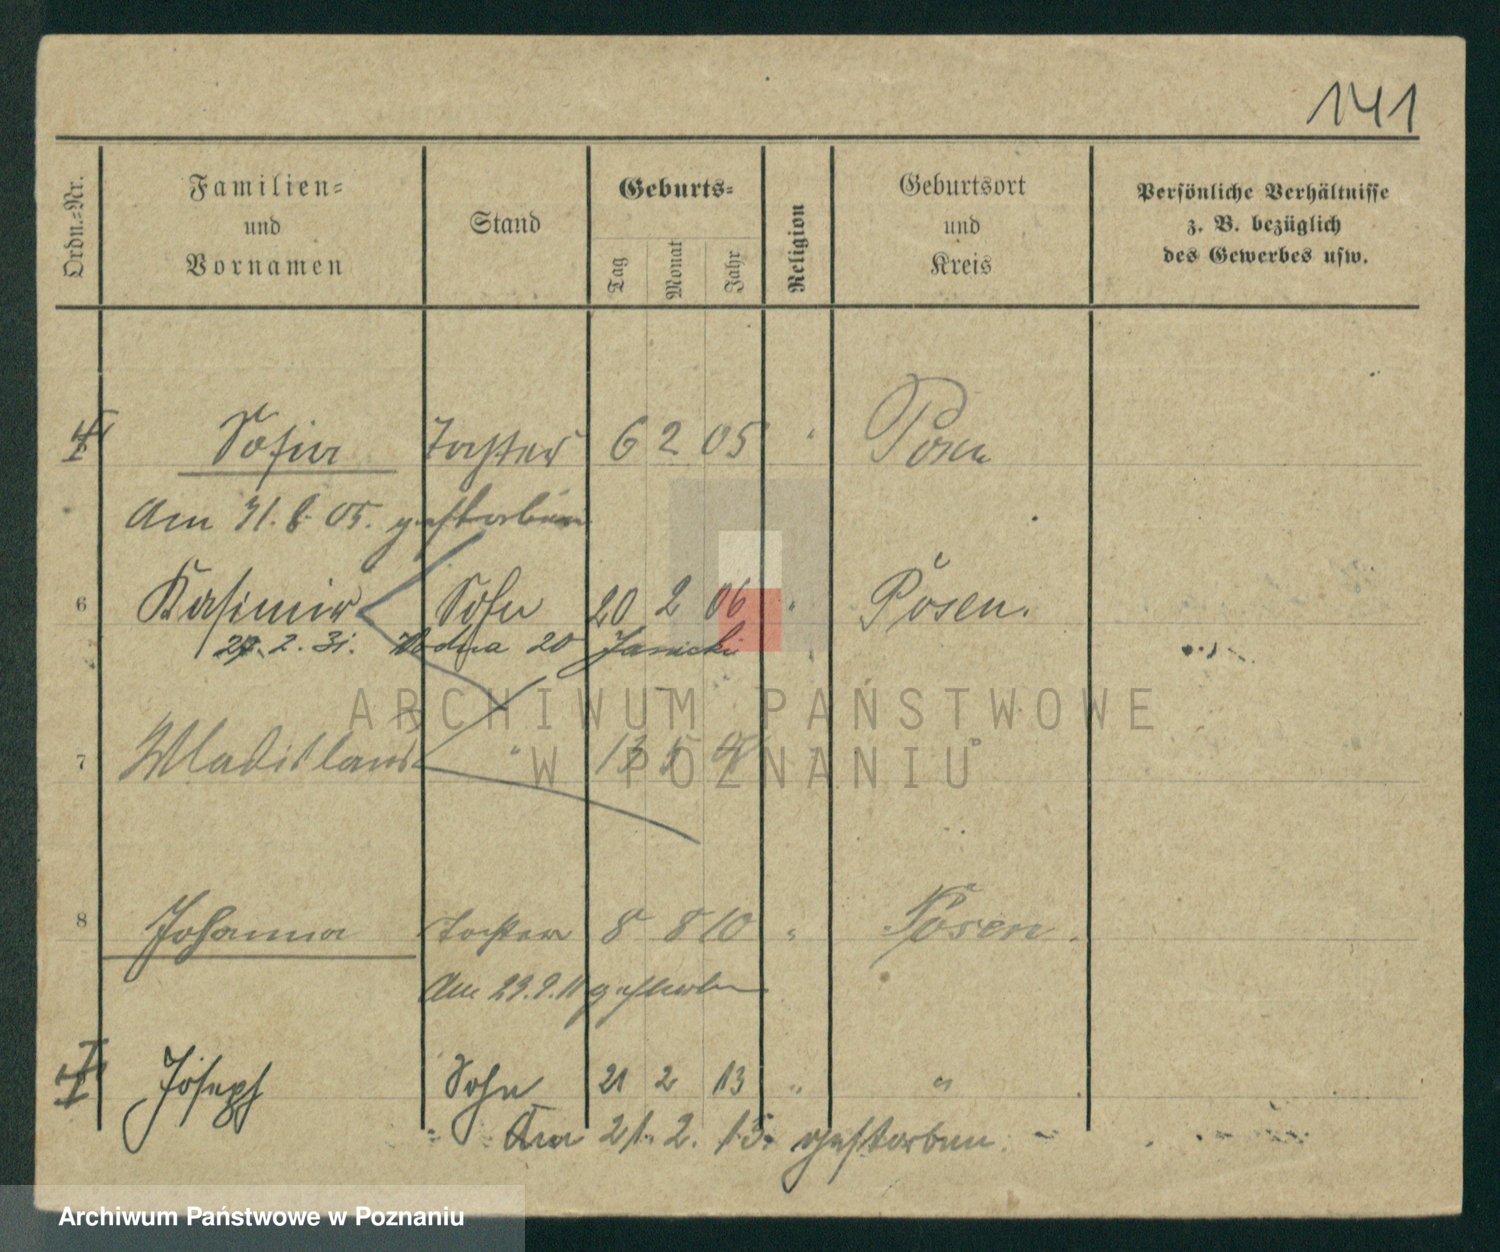 141
Ordn.-Nr.
Familien-
und
Vornamen
Stand
Geburts-
Tag
Monat
Jahr
Religion
Geburtsort
und
Kreis
Persönliche Verhältnisse
z. B. bezüglich
des Gewerbes usw.
Sofia Tochter 6 2 05 " Posen
Am 31. 8. 05. gestorben
6 Kasimir Sohn 20 2 06 " Posen.
2. 31. Wodna 20 Janicki
ARCHIWUM PAŃSTWOWE
7 Wladislaus " 13 5 "
W POZNANIU
8 Johanna Tochter 8 8 10 " Posen.
Am 23. 9. 10 gestorben
Joseph Sohn 21 2 13 " "
Am 21. 2. 13. gestorben.
Archiwum Państwowe w Poznaniu